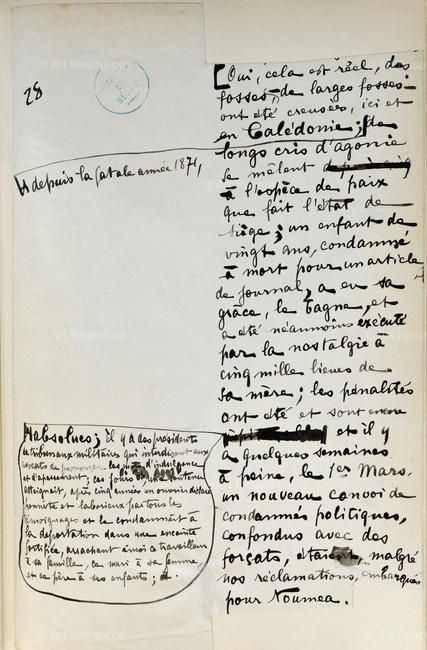 28
[Oui, cela est réel, des
fosses, de larges fosses
ont été creusées, ici et
en Calédonie; de
↳ depuis la fatale année 1871,
longs cris d'agonie
se mêlent
à l'espèce de paix
que fait l'état de
siège; un enfant de
vingt ans, condamné
à mort pour un article
de journal, a eu sa
grâce, le bagne, et
a été néanmoins exécuté
par la nostalgie à
cinq mille lieues de
sa mère; les pénalités
ont été et sont encore
absolues; il y a des présidents
de tribunaux militaires qui interdisent aux
avocats de prononcer les mots d'indulgence
et d'apaisement; ces jours
sentence
atteignait, après cinq années un ouvrier déclaré
honnête et laborieux par tous les
témoignages et le condamnait à
la déportation dans une enceinte
fortifiée, arrachant ainsi ce travailleur
à sa famille, ce mari à sa femme
et ce père à ses enfants;
et il y
a quelques semaines
à peine, le 1er Mars,
un nouveau convoi de
condamnés politiques,
confondus avec des
forçats, étaient, malgré
nos réclamations, embarqués
pour Nouméa.
© Art Resource